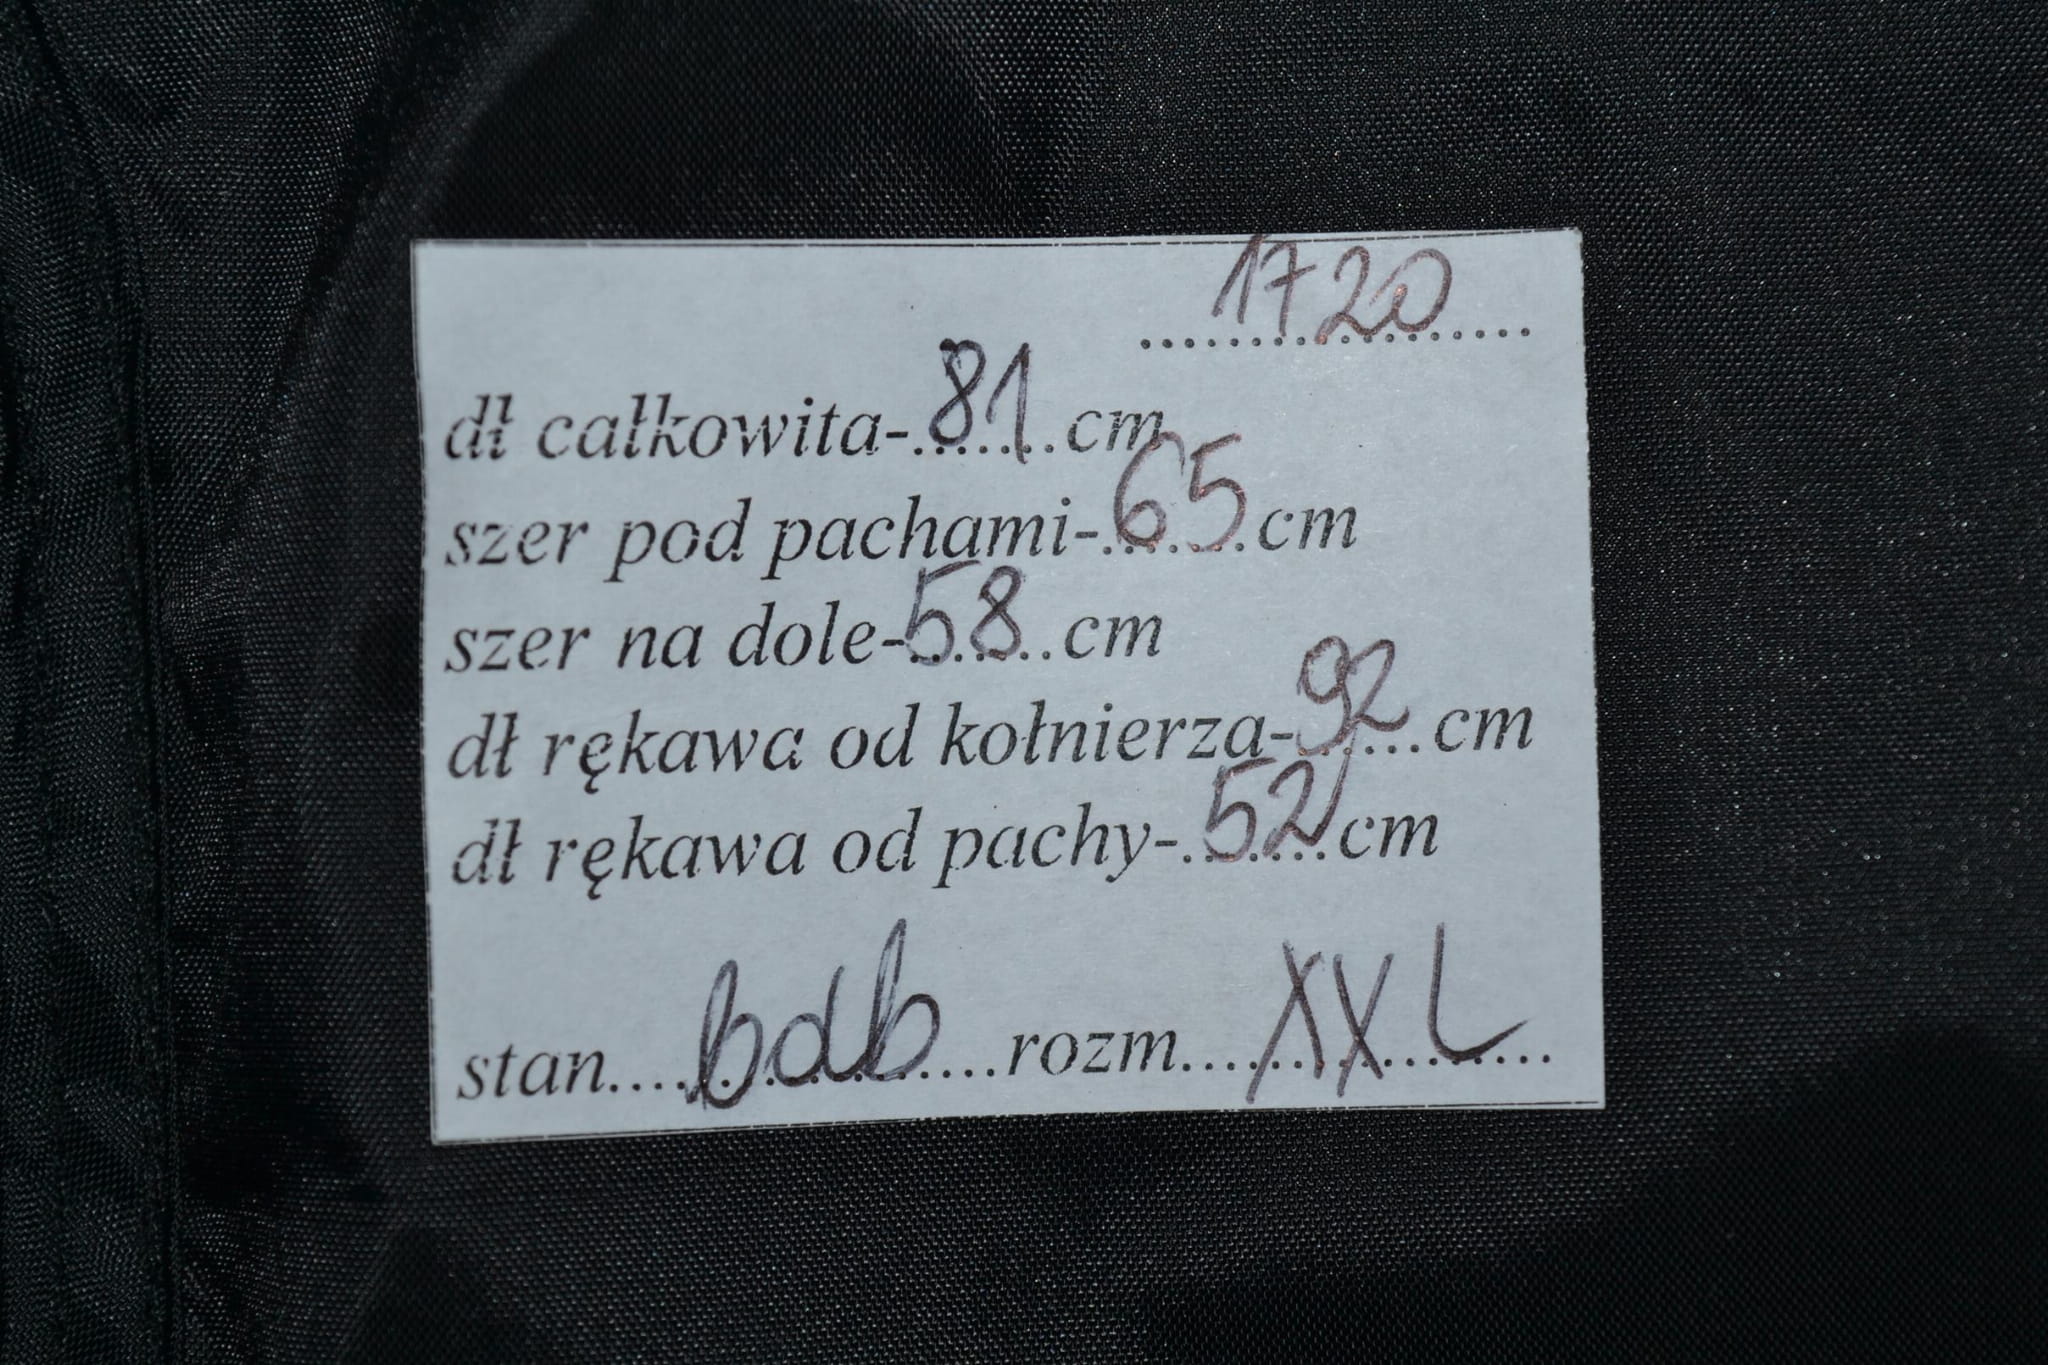 1720
dł całkowita-81cm
szer pod pachami-65cm
szer na dole-58cm
dł rękawa od kołnierza-92cm
dł rękawa od pachy-52cm
stan....bdb....rozm....XXL....